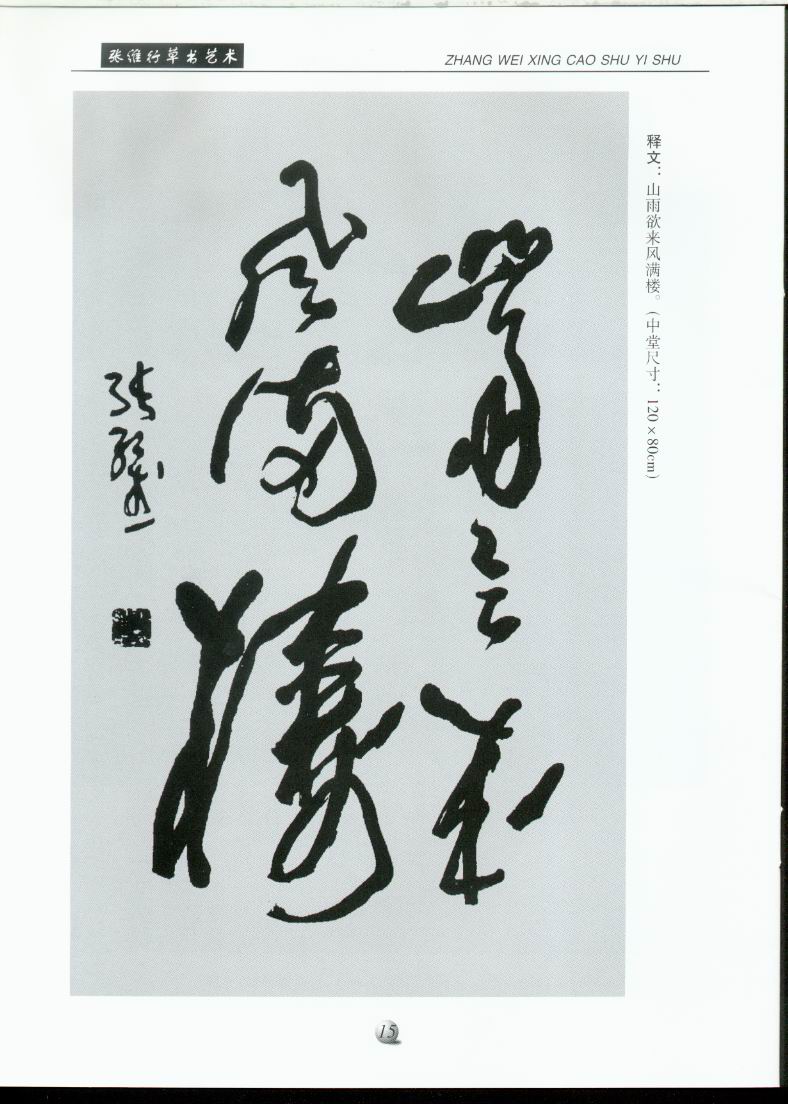 张维行草书艺术
ZHANG WEI XING CAO SHU YI SHU
释文：山雨欲来风满楼。（中堂尺寸：120×80cm）
山雨欲来
风满楼
张维
15